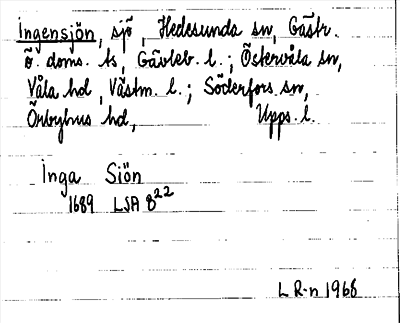 Ingensjön, sjö, Hedesunda sn, Gästr.
ö. doms. ts, Gävleb. l.; Östervåla sn,
Våla hd, Västm. l.; Söderfors sn,
Örbyhus hd, Upps. l.
Inga Siön
1689 LSA 8²²
L R-n 1968